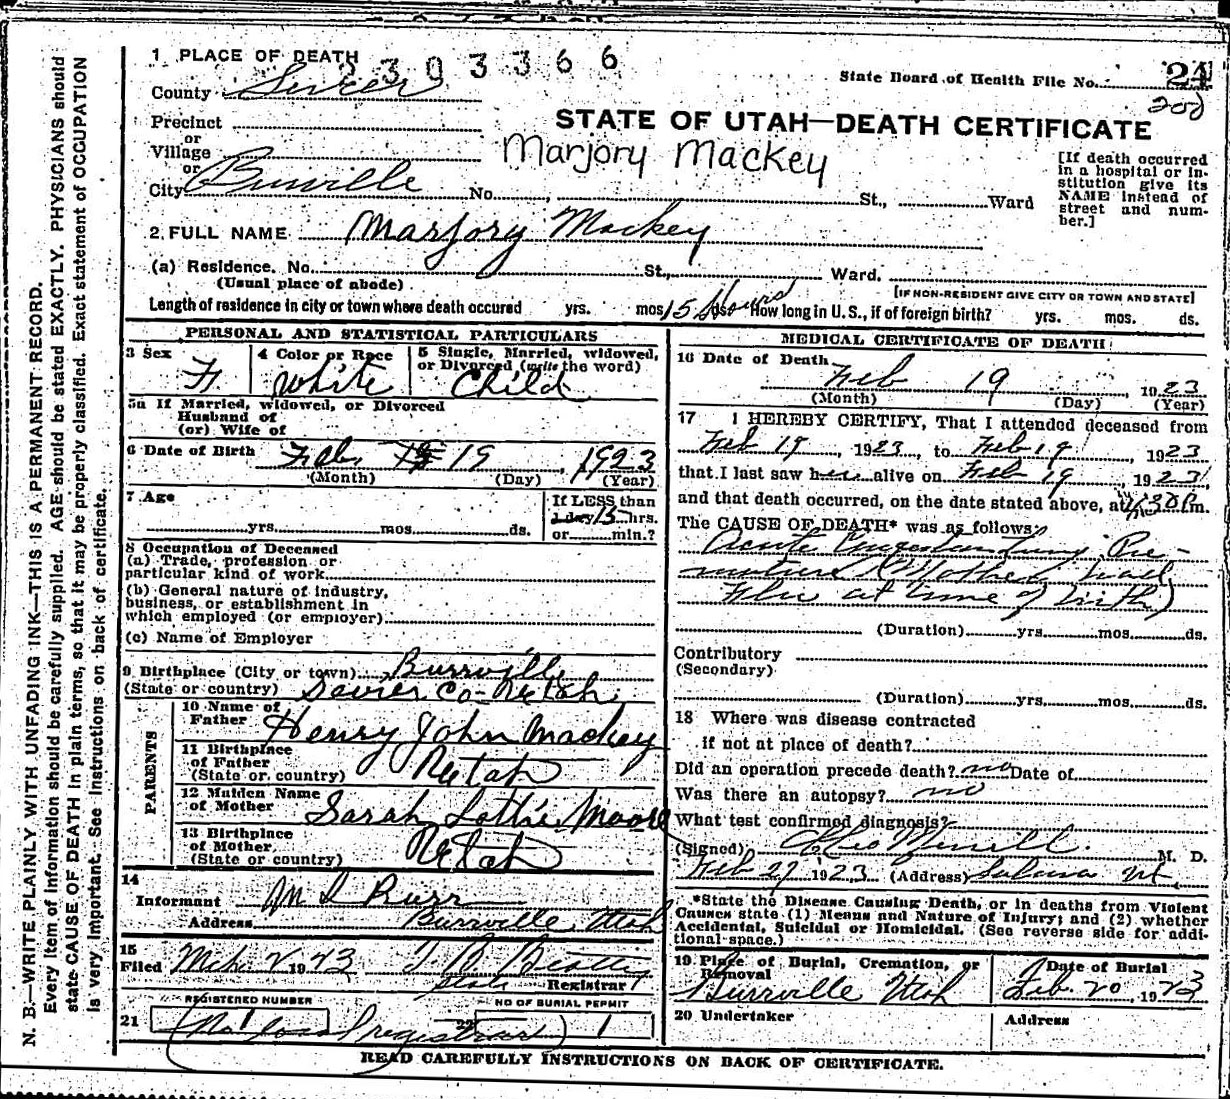 1 PLACE OF DEATH
2303366
State Board of Health File No. 24
200
County Sevier
STATE OF UTAH—DEATH CERTIFICATE
Precinct
or
Village
or
City Burrville No. St., Ward
Marjory Mackey
[If death occurred
in a hospital or in-
stitution give its
NAME instead of
street and num-
ber.]
2. FULL NAME Marjory Mackey
(a) Residence. No. St., Ward.
(Usual place of abode)
[IF NON-RESIDENT GIVE CITY OR TOWN AND STATE]
Length of residence in city or town where death occured yrs. mos. 15 Hours How long in U.S., if of foreign birth? yrs. mos. ds.
PERSONAL AND STATISTICAL PARTICULARS
3 Sex F
4 Color or Race White
5 Single, Married, widowed,
or Divorced (write the word)
Child
5a If Married, widowed, or Divorced
Husband of
(or) Wife of
6 Date of Birth Feb. 19, 1923
(Month) (Day) (Year)
7 Age
yrs. mos. ds.
If LESS than
1 day 15 hrs.
or min.?
8 Occupation of Deceased
(a) Trade, profession or
particular kind of work
(b) General nature of industry,
business, or establishment in
which employed (or employer)
(c) Name of Employer
9 Birthplace (City or town) Burrville
(State or country) Sevier Co- Utah
PARENTS
10 Name of
Father Henry John Mackey
11 Birthplace
of Father
(State or country) Utah
12 Maiden Name
of Mother Sarah Lottie Moore
13 Birthplace
of Mother
(State or country) Utah
14
Informant Burr
Address Burrville, Utah
15
Filed Mch. 2 1923
State Registrar
REGISTERED NUMBER
NO OF BURIAL PERMIT
21 (No local registrar) 22 1
MEDICAL CERTIFICATE OF DEATH
16 Date of Death
Feb 19, 1923
(Month) (Day) (Year)
17 I HEREBY CERTIFY, That I attended deceased from
Feb 19, 1923, to Feb 19, 1923
that I last saw her alive on Feb 19, 1923,
and that death occurred, on the date stated above, at 30 P.m.
The CAUSE OF DEATH* was as follows:
Acute Congestion lung Pre-
mature (Mother had
Flu at time of birth)
(Duration) yrs. mos. ds.
Contributory
(Secondary)
(Duration) yrs. mos. ds.
18 Where was disease contracted
if not at place of death?
Did an operation precede death? no Date of
Was there an autopsy? no
What test confirmed diagnosis?
(Signed) Merrill M. D.
Feb 27 1923 (Address) Salina Ut.
*State the Disease Causing Death, or in deaths from Violent
Causes state (1) Means and Nature of Injury; and (2) whether
Accidental, Suicidal or Homicidal. (See reverse side for addi-
tional space.)
19 Place of Burial, Cremation, or
Removal
Burrville Utah
Date of Burial
Feb. 20, 1923
20 Undertaker
Address
READ CAREFULLY INSTRUCTIONS ON BACK OF CERTIFICATE.
N. B.—WRITE PLAINLY WITH UNFADING INK—THIS IS A PERMANENT RECORD.
Every item of information should be carefully supplied. AGE should be stated EXACTLY. PHYSICIANS should
state CAUSE OF DEATH in plain terms, so that it may be properly classified. Exact statement of OCCUPATION
is very important. See instructions on back of certificate.